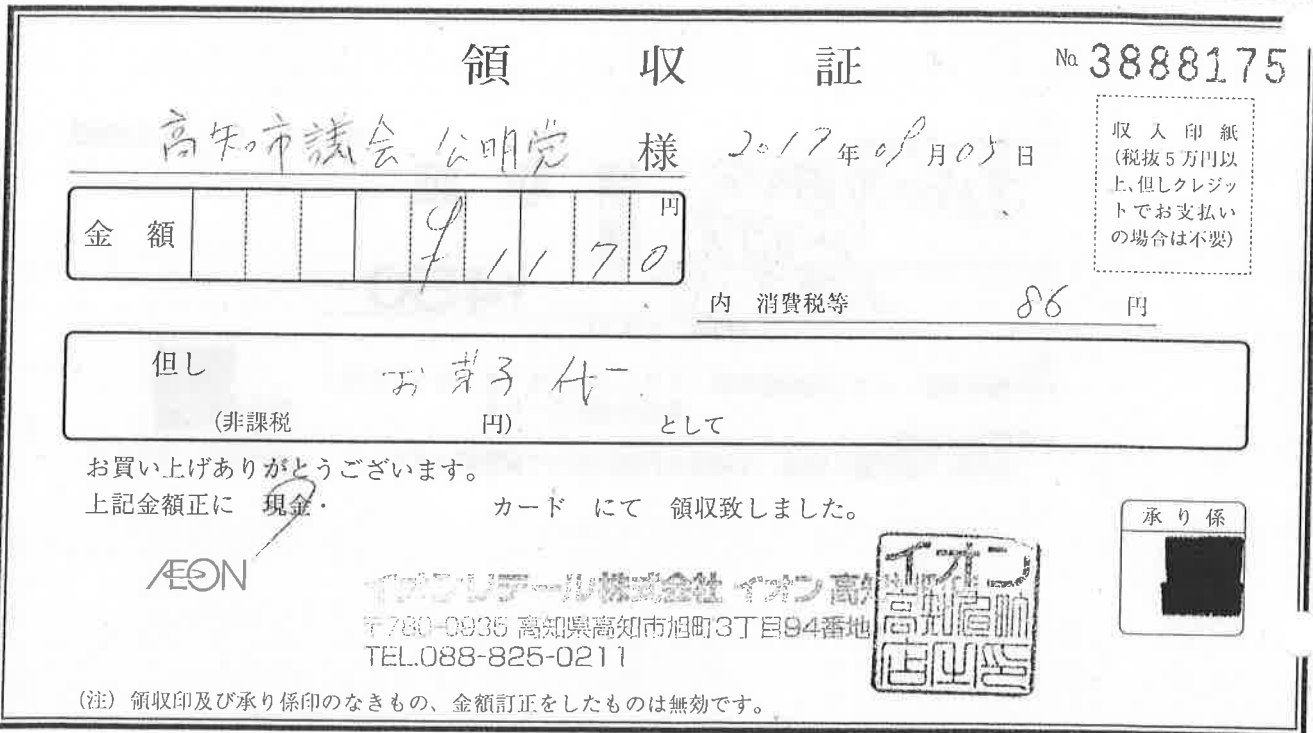 領収証
No. 3888175
高知市議会 公明党 様
2017年09月05日
収入印紙
(税抜5万円以
上、但しクレジッ
トでお支払い
の場合は不要)
金額 ¥1170円
内 消費税等 86円
但し お菓子代
(非課税 円) として
お買い上げありがとうございます。
上記金額正に 現金・ カード にて 領収致しました。
承り係
ÆON
イオンリテール株式会社 イオン高知
イオン
高知
店
〒780-0935 高知県高知市旭町3丁目94番地
TEL.088-825-0211
(注) 領収印及び承り係印のなきもの、金額訂正をしたものは無効です。